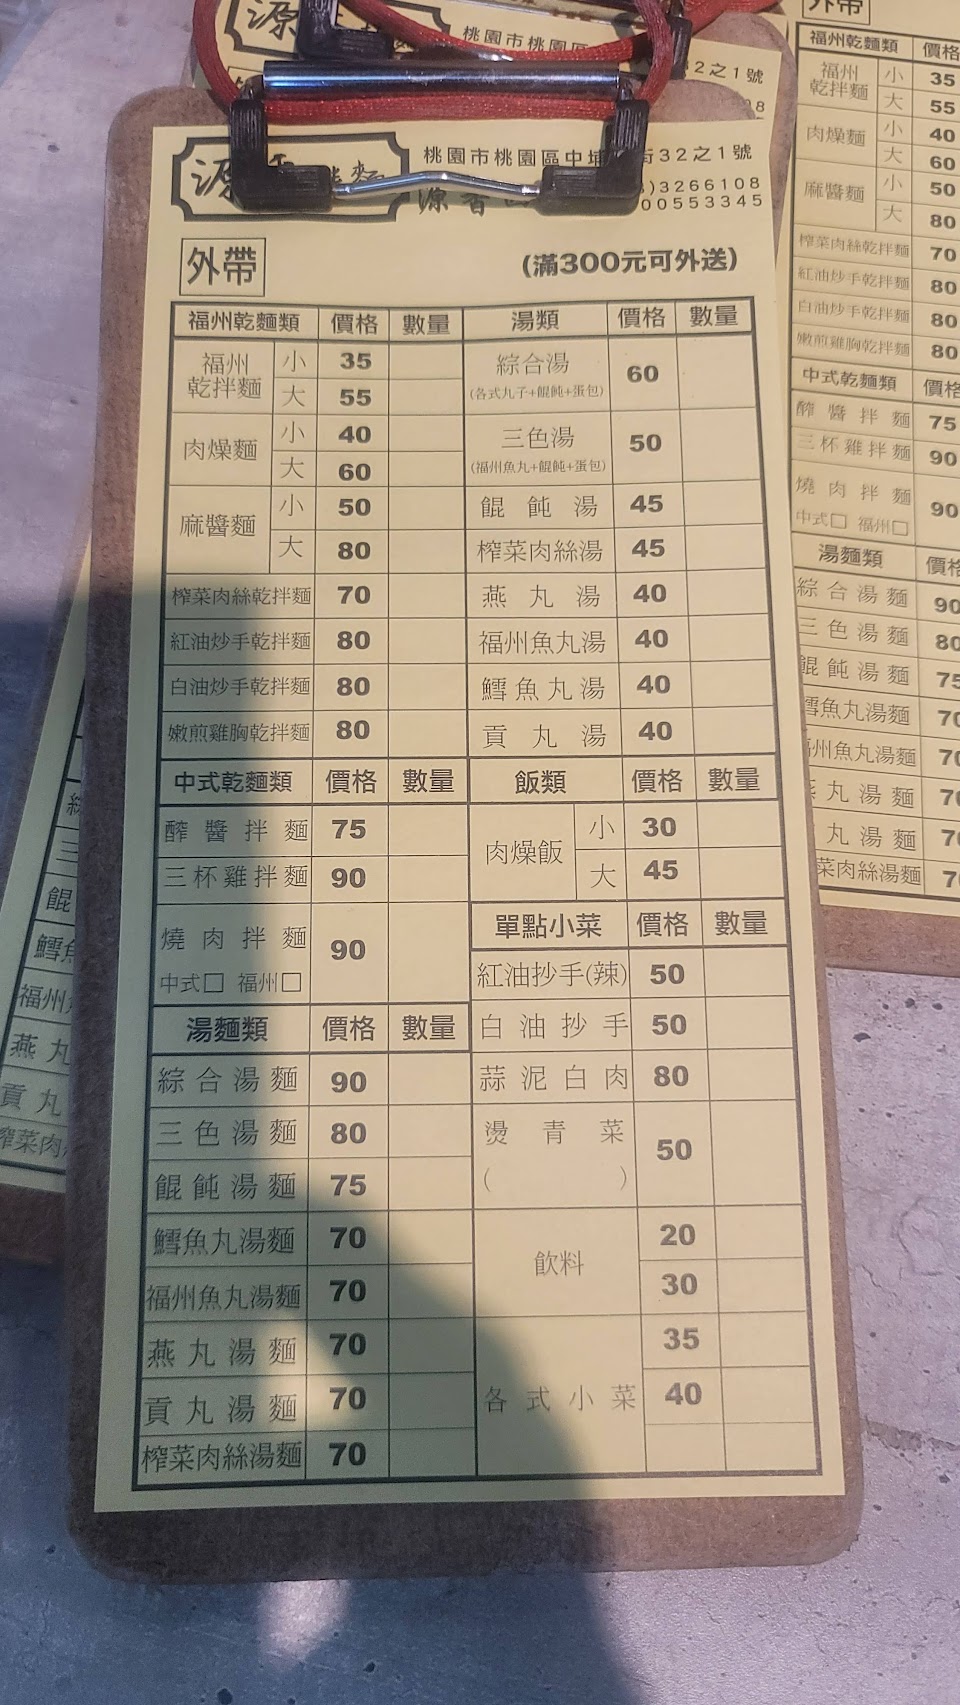 桃園市桃園區中埔 街32之1號
3266108
00553345
外帶
(滿300元可外送)
福州乾麵類 價格 數量
福州乾拌麵 小 35
大 55
肉燥麵 小 40
大 60
麻醬麵 小 50
大 80
榨菜肉絲乾拌麵 70
紅油炒手乾拌麵 80
白油炒手乾拌麵 80
嫩煎雞胸乾拌麵 80
中式乾麵類 價格 數量
醡醬拌麵 75
三杯雞拌麵 90
燒肉拌麵 90
中式□ 福州□
湯麵類 價格 數量
綜合湯麵 90
三色湯麵 80
餛飩湯麵 75
鱈魚丸湯麵 70
福州魚丸湯麵 70
燕丸湯麵 70
貢丸湯麵 70
榨菜肉絲湯麵 70
湯類 價格 數量
綜合湯 60
(各式丸子+餛飩+蛋包)
三色湯 50
(福州魚丸+餛飩+蛋包)
餛飩湯 45
榨菜肉絲湯 45
燕丸湯 40
福州魚丸湯 40
鱈魚丸湯 40
貢丸湯 40
飯類 價格 數量
肉燥飯 小 30
大 45
單點小菜 價格 數量
紅油抄手(辣) 50
白油抄手 50
蒜泥白肉 80
燙青菜 50
( )
飲料 20
30
各式小菜 35
40
外帶
福州乾麵類 價格
福州乾拌麵 小 35
大 55
肉燥麵 小 40
大 60
麻醬麵 小 50
大 80
榨菜肉絲乾拌麵 70
紅油炒手乾拌麵 80
白油炒手乾拌麵 80
嫩煎雞胸乾拌麵 80
中式乾麵類 價格
醡醬拌麵 75
三杯雞拌麵 90
燒肉拌麵 90
中式□ 福州□
湯麵類 價格
綜合湯麵 90
三色湯麵 80
餛飩湯麵 75
鱈魚丸湯麵 70
州魚丸湯麵 70
丸湯麵 70
丸湯麵 70
菜肉絲湯麵 70